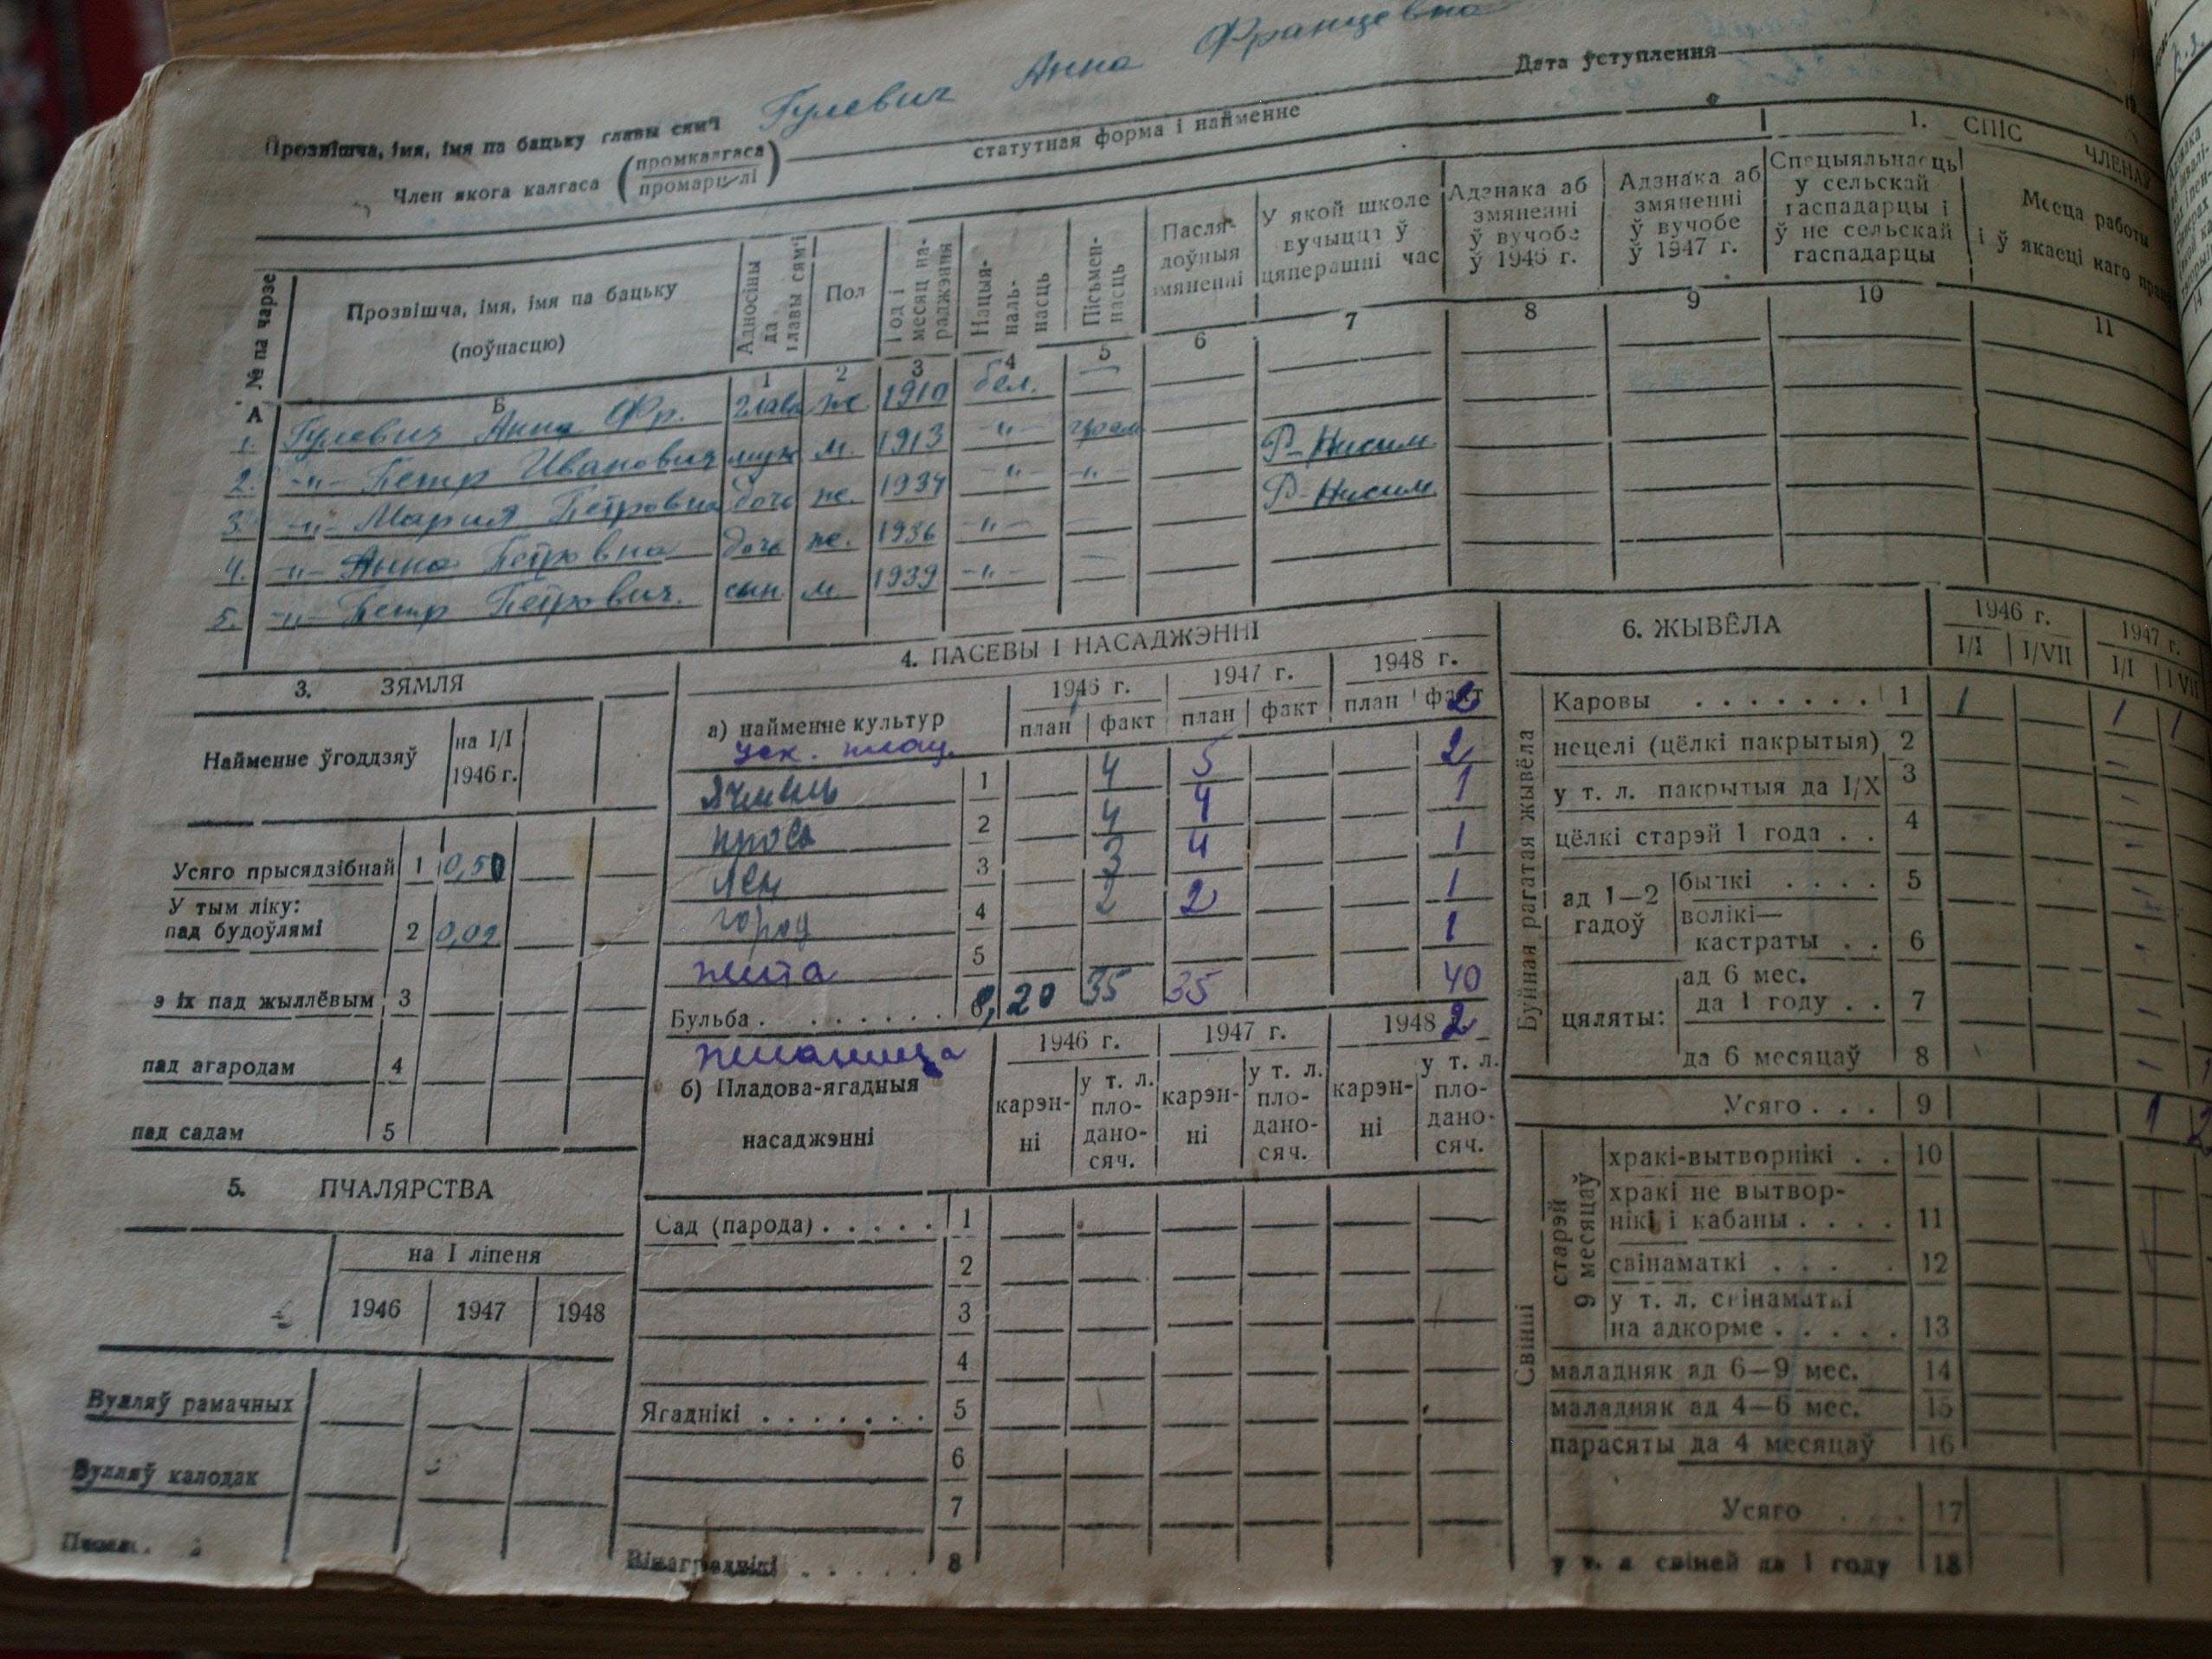 Прозвішча, імя, імя па бацьку главы сям'і Гулевич Анна Францевна
Член якога калгаса (промкалгаса / промарцелі) статутная форма і найменне
Дата ўступлення
1. СПІС ЧЛЕНАЎ
№ па чарзе
Прозвішча, імя, імя па бацьку (поўнасцю)
Адносіны да главы сям'і
Пол
Год і месяц нараджэння
Нацыянальнасць
Пісьменнасць
Пасля- доўныя змяненні
У якой школе вучыцца ў цяперашні час
Адзнака аб змяненні ў вучобе ў 1946 г.
Адзнака аб змяненні ў вучобе ў 1947 г.
Спецыяльнасць у сельскай гаспадарцы і ў не сельскай гаспадарцы
Месца работы і ў якасці каго
А Б 1 2 3 4 5 6 7 8 9 10 11
1. Гулевич Анна Фр. глава ж. 1910 бел. —
2. -"- Петр Иванович муж м. 1913 -"- грам
3. -"- Мария Петровна дочь ж. 1934 -"- -"-
4. -"- Анна Петровна дочь ж. 1936 -"-
5. -"- Петр Петрович. сын м. 1939 -"-
3. ЗЯМЛЯ
Найменне ўгоддзяў на I/I 1946 г.
Усяго прысядзібнай 1 0,50
У тым ліку:
пад будоўлямі 2 0,09
з іх пад жыллёвым 3
пад агародам 4
пад садам 5
5. ПЧАЛЯРСТВА
на I ліпеня
1946 1947 1948
Вулляў рамачных
Вулляў калодак
4. ПАСЕВЫ І НАСАДЖЭННІ
а) найменне культур
1946 г. 1947 г. 1948 г.
план факт план факт план факт
Ячмень 1 4 5 2
проса 2 4 4 1
лен 3 3 4 1
город 4 2 2 1
жита 5 1
Бульба . . . . . . . 8,20 35 35 40
пшаница 2
б) Пладова-ягадныя насаджэнні
1946 г. 1947 г. 1948
карэнні у т. л. плоданосяч. карэнні у т. л. плоданосяч. карэнні у т. л. плоданосяч.
Сад (парода) . . . . . 1
2
3
4
Ягаднікі . . . . . . . 5
6
7
Вінаграднікі . . . . . 8
6. ЖЫВЁЛА
1946 г. 1947 г.
I/I I/VII I/I I/VII
Буйная рагатая жывёла
Каровы . . . . . . . 1 1 1 1
нецелі (цёлкі пакрытыя) 2
у т. л. пакрытыя да I/X 3
цёлкі старэй 1 года . . 4
ад 1—2 гадоў
бычкі . . . . 5
волікі—кастраты . . 6
цяляты:
ад 6 мес. да 1 году . . 7
да 6 месяцаў 8 - 1
Усяго . . . 9 1 2
Свінні
старэй 9 месяцаў
хракі-вытворнікі . . 10
хракі не вытворнікі і кабаны . . . . 11
свінаматкі . . . . 12
у т. л. свінаматкі на адкорме . . . . . 13
маладняк ад 6—9 мес. 14
маладняк ад 4—6 мес. 15
парасяты да 4 месяцаў 16
Усяго . . . 17
у т. л. свіней да 1 году 18